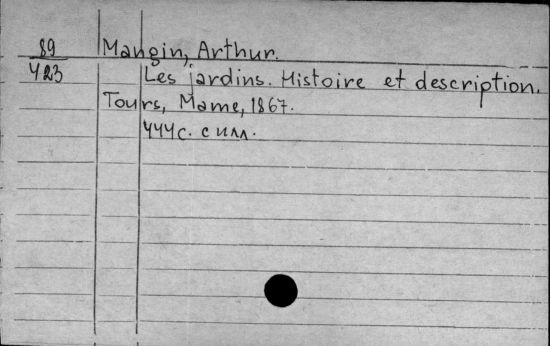 89 Mangin, Arthur.
423 Les jardins. Histoire et description.
Tours, Mame, 1867.
444 с. с илл.